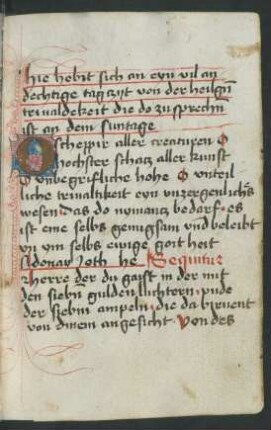 hie hebit sich an eyn vil an
dechtige tag zijt von der heilgn̄
triualdekeit die do zu sprechn̄
ist an dem suntage
O scheppir aller creaturen O
hochster schacz aller kunst
O vnbegrifliche hohe O vnteil
liche triualtikeit eyn vnzergenlichs
wesen Das do nymancz bedarf es
ist eine selbs genugsam vnd beleibt
yn ym selbs ewige gott heit
Adonay Joth he Sequitur
Herre der du gast in der mit
den sieben gulden luchtern vnde
der siebin ampeln die da birnent
von dinem angesicht Von des